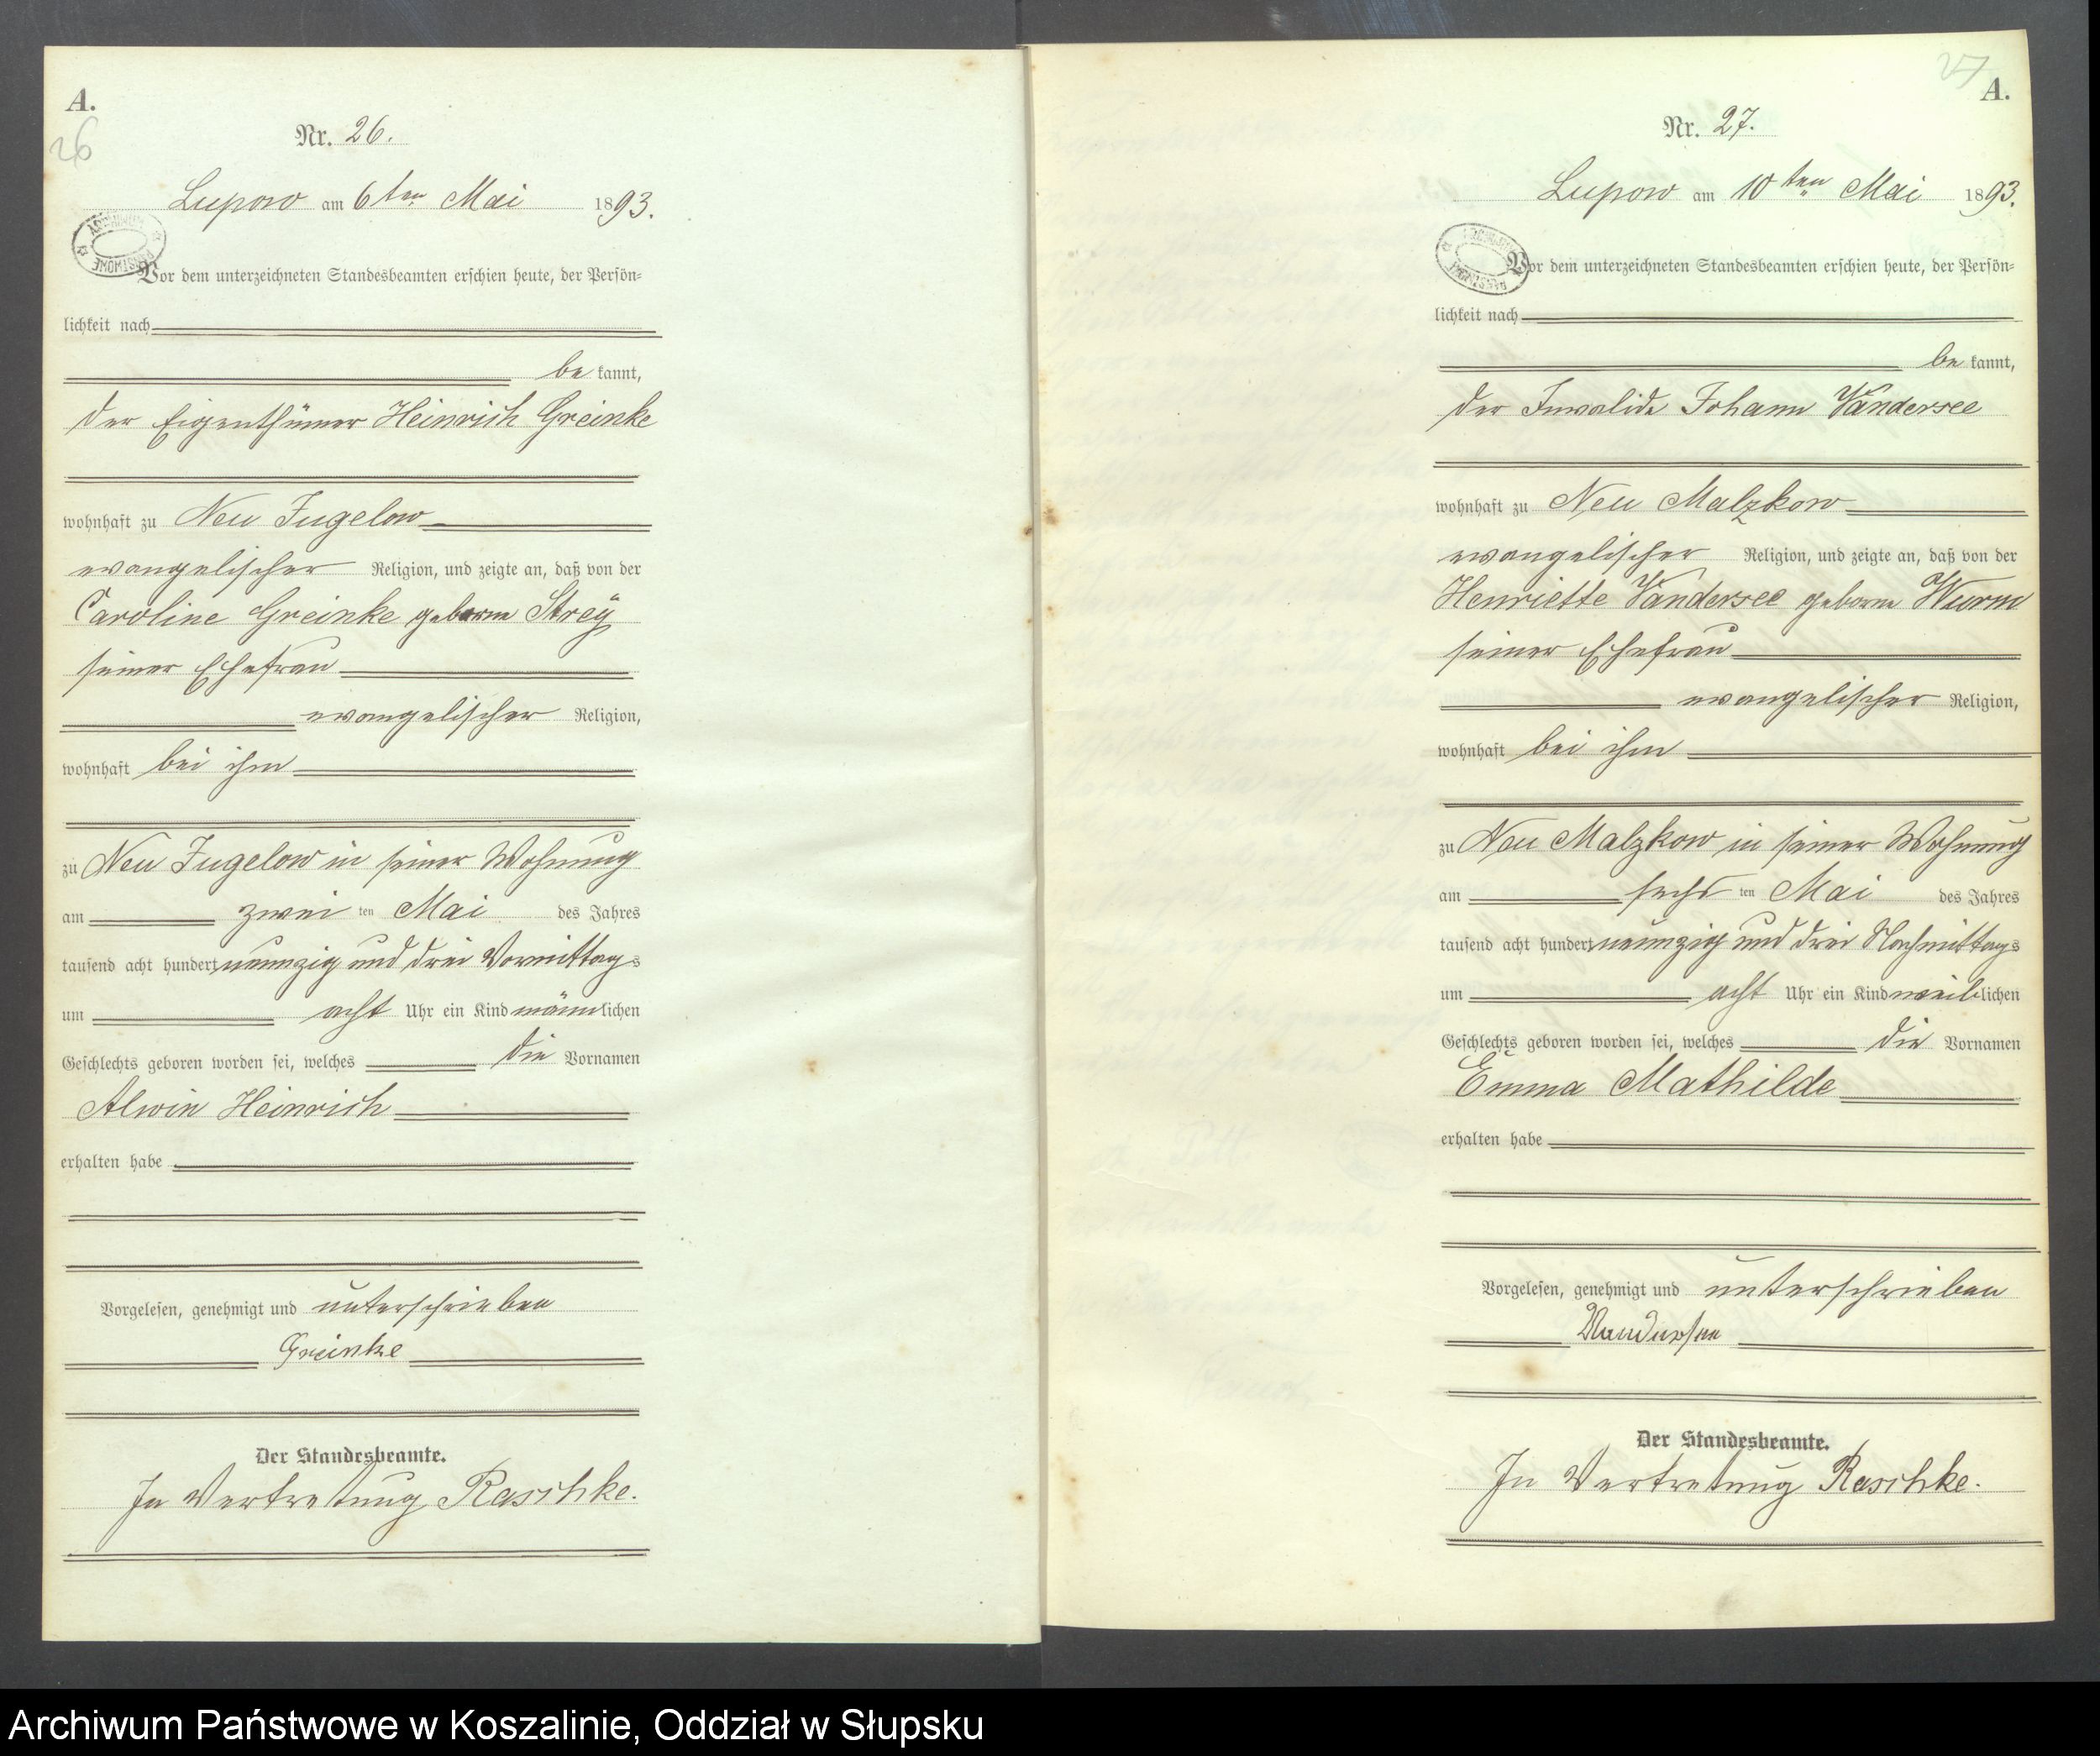 A.
26
Nr. 26.
Lupow am 6ten Mai 1893.
Vor dem unterzeichneten Standesbeamten erschien heute, der Persön=
lichkeit nach
be kannt,
der Eigenthümer Heinrich Greinke
wohnhaft zu Neu Jugelow
evangelischer Religion, und zeigte an, daß von der
Caroline Greinke geborne Strey
seiner Ehefrau
evangelischer Religion,
wohnhaft bei ihm
zu Neu Jugelow in seiner Wohnung
am zwei ten Mai des Jahres
tausend acht hundert neunzig und drei Vormittags
um acht Uhr ein Kind männlichen
Geschlechts geboren worden sei, welches die Vornamen
Alwin Heinrich
erhalten habe
Vorgelesen, genehmigt und unterschrieben
Greinke
Der Standesbeamte.
In Vertretung Raschke.
27
A.
Nr. 27.
Lupow am 10ten Mai 1893.
Vor dem unterzeichneten Standesbeamten erschien heute, der Persön=
lichkeit nach
be kannt,
der Invalide Johann Vandersee
wohnhaft zu Neu Malzkow
evangelischer Religion, und zeigte an, daß von der
Henriette Vandersee geborne Wurm
seiner Ehefrau
evangelischer Religion,
wohnhaft bei ihm
zu Neu Malzkow in seiner Wohnung
am sechs ten Mai des Jahres
tausend acht hundert neunzig und drei Nachmittags
um acht Uhr ein Kind weiblichen
Geschlechts geboren worden sei, welches die Vornamen
Emma Mathilde
erhalten habe
Vorgelesen, genehmigt und unterschrieben
Vandersee
Der Standesbeamte.
In Vertretung Raschke.
Archiwum Państwowe w Koszalinie, Oddział w Słupsku